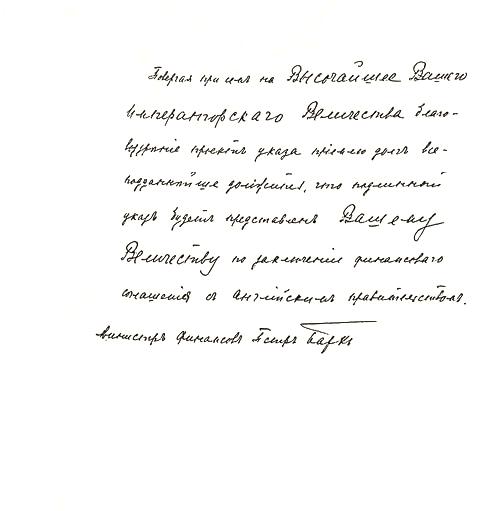 Повергая при семъ на Высочайшее Вашего
Императорскаго Величества благо-
воззрѣніе проектъ указа пріемлю долгъ все-
подданнѣйше доложить, что подлинный
указъ будетъ представленъ Вашему
Величеству по заключеніи финансоваго
соглашенія съ англійскимъ правительствомъ.
Министръ финансовъ Петръ Баркъ